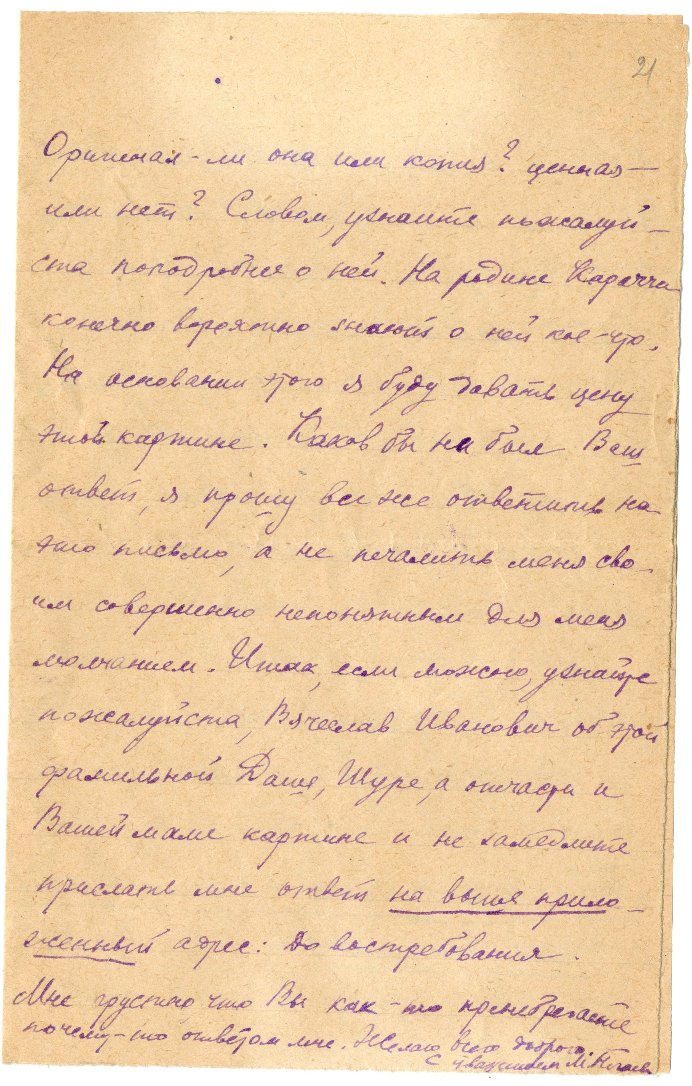 21
Оригинал-ли она или копия? ценная —
или нет? Словом, узнаите пожалуй-
ста поподробнее о ней. На родине Карачча
конечно вероятно знают о ней кое-что.
На основании этого я буду давать цену
этой картине. Каков бы ни был Ваш
ответ, я прошу все же ответить на
это письмо, а не печалить меня сво-
им совершенно непонятным для меня
молчанием. Итак, если можно, узнайте
пожалуйста, Вячеслав Иванович об этой
фамильной Даше, Шуре, а отчасти и
Вашей маме картине и не замедлите
прислать мне ответ на выше прило-
женный адрес: До востребования.
Мне грустно, что Вы как-то пренебрегаете
почему-то ответом мне. Желаю всего доброго.
С уважением М.